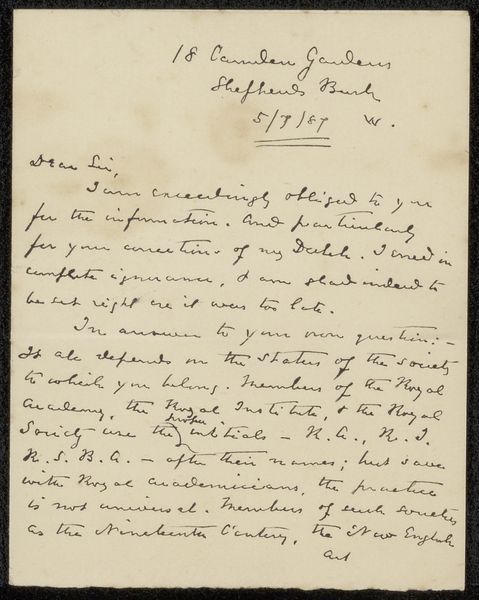 18 Camden Gardens
Shepherds Bush
5/7/89 W.
Dear Sir,
I am exceedingly obliged to you
for the information. And particularly
for your corrections of my Dutch. I erred in
complete ignorance, & am glad indeed to
be set right ere it was too late.
In answer to your own question:-
It all depends on the status of the society
to which you belong. Members of the Royal
Academy, the Royal Institute, & the Royal
Society use the proper initials - R.A., R.I.
R.S.B.A. - after their names; but save
with Royal Academicians, the practice
is not universal. Members of such societies
as the Nineteenth Century, the New English
Art